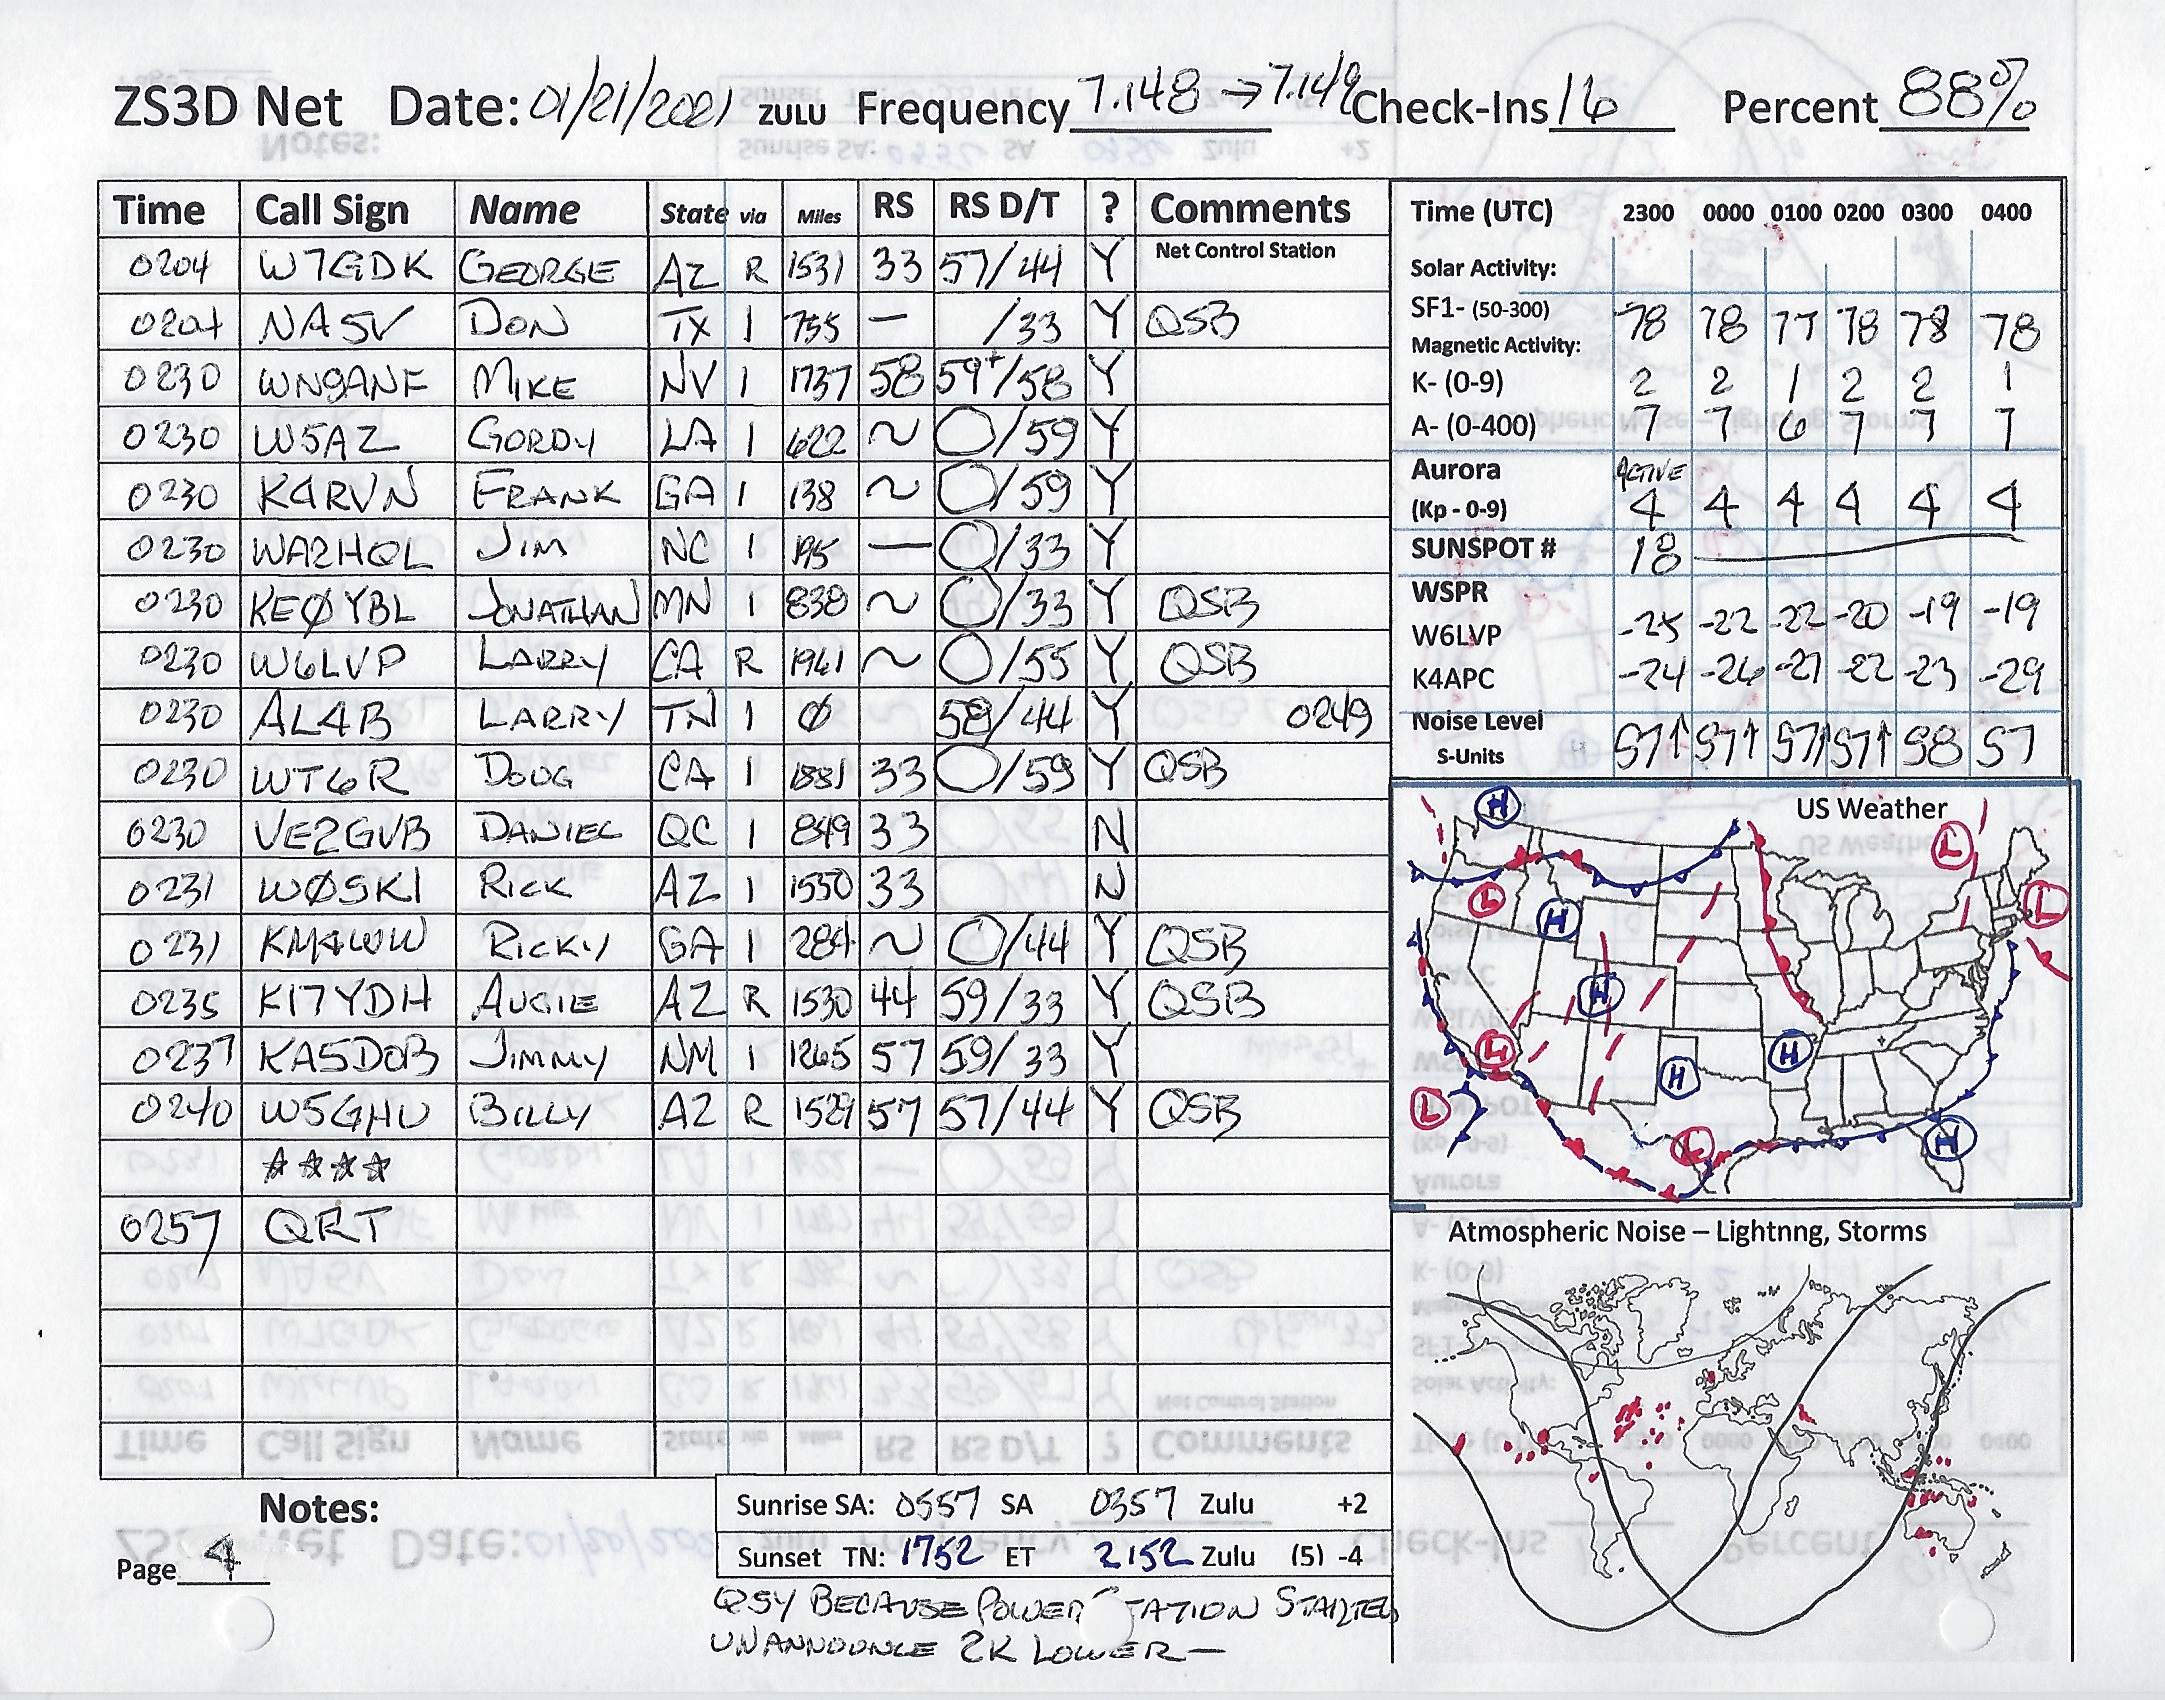 ZS3D Net Date: 01/21/2021 ZULU Frequency 7.148 → 7.149 Check-Ins 16 Percent 88%
Time Call Sign Name State via Miles RS RS D/T ? Comments
0204 W7GDK GEORGE AZ R 1531 33 57/44 Y Net Control Station
0204 NA5V DON TX 1 755 — /33 Y QSB
0230 WN9ANF MIKE NV 1 1737 58 59+/58 Y
0230 W5AZ GORDY LA 1 622 ~ O/59 Y
0230 K4RVN FRANK GA 1 138 ~ O/59 Y
0230 WA2HQL JIM NC 1 195 — O/33 Y
0230 KEØYBL JONATHAN MN 1 838 ~ O/33 Y QSB
0230 W6LVP LARRY CA R 1961 ~ O/55 Y QSB
0230 AL4B LARRY TN 1 Ø 59/44 Y 0249
0230 WT6R DOUG CA 1 1881 33 O/59 Y QSB
0230 VE2GVB DANIEL QC 1 849 33 N
0231 WØSKI RICK AZ 1 1550 33 N
0231 KM4WW RICKY GA 1 284 ~ O/44 Y QSB
0235 KI7YDH AUGIE AZ R 1530 44 59/33 Y QSB
0237 KA5DOB JIMMY NM 1 1265 57 59/33 Y
0240 W5GHU BILLY AZ R 1529 57 57/44 Y QSB
☆☆☆☆
0257 QRT
Time (UTC) 2300 0000 0100 0200 0300 0400
Solar Activity:
SF1- (50-300) 78 78 77 78 78 78
Magnetic Activity:
K- (0-9) 2 2 1 2 2 1
A- (0-400) 7 7 6 7 7 7
Aurora ACTIVE
(Kp - 0-9) 4 4 4 4 4 4
SUNSPOT # 18
WSPR
W6LVP -25 -22 -22 -20 -19 -19
K4APC -24 -26 -27 -22 -23 -29
Noise Level
S-Units S7↑ S7↑ S7↑ S7↑ S8 S7
US Weather
H
L
L
H
L
H
L
H
H
L
L
H
Atmospheric Noise – Lightnng, Storms
Notes:
Page 4
Sunrise SA: 0557 SA 0357 Zulu +2
Sunset TN: 1752 ET 2152 Zulu (5) -4
QSY BECAUSE POWER STATION STARTED
UNANNOUNCE 2K LOWER —